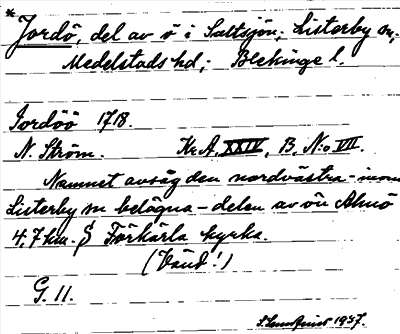 * Jordö, del av ö i Saltsjön; Listerby sn,
Medelstads hd; Blekinge l.
Jordöö 1718.
N. Ström. Kr. A. XXIV, B. No VII.
Namnet avsåg den nordvästra – inom
Listerby sn belägna – delen av ön Almö
4.7 km. S Förkärla kyrka.
(Vänd!)
G. 11.
1947.